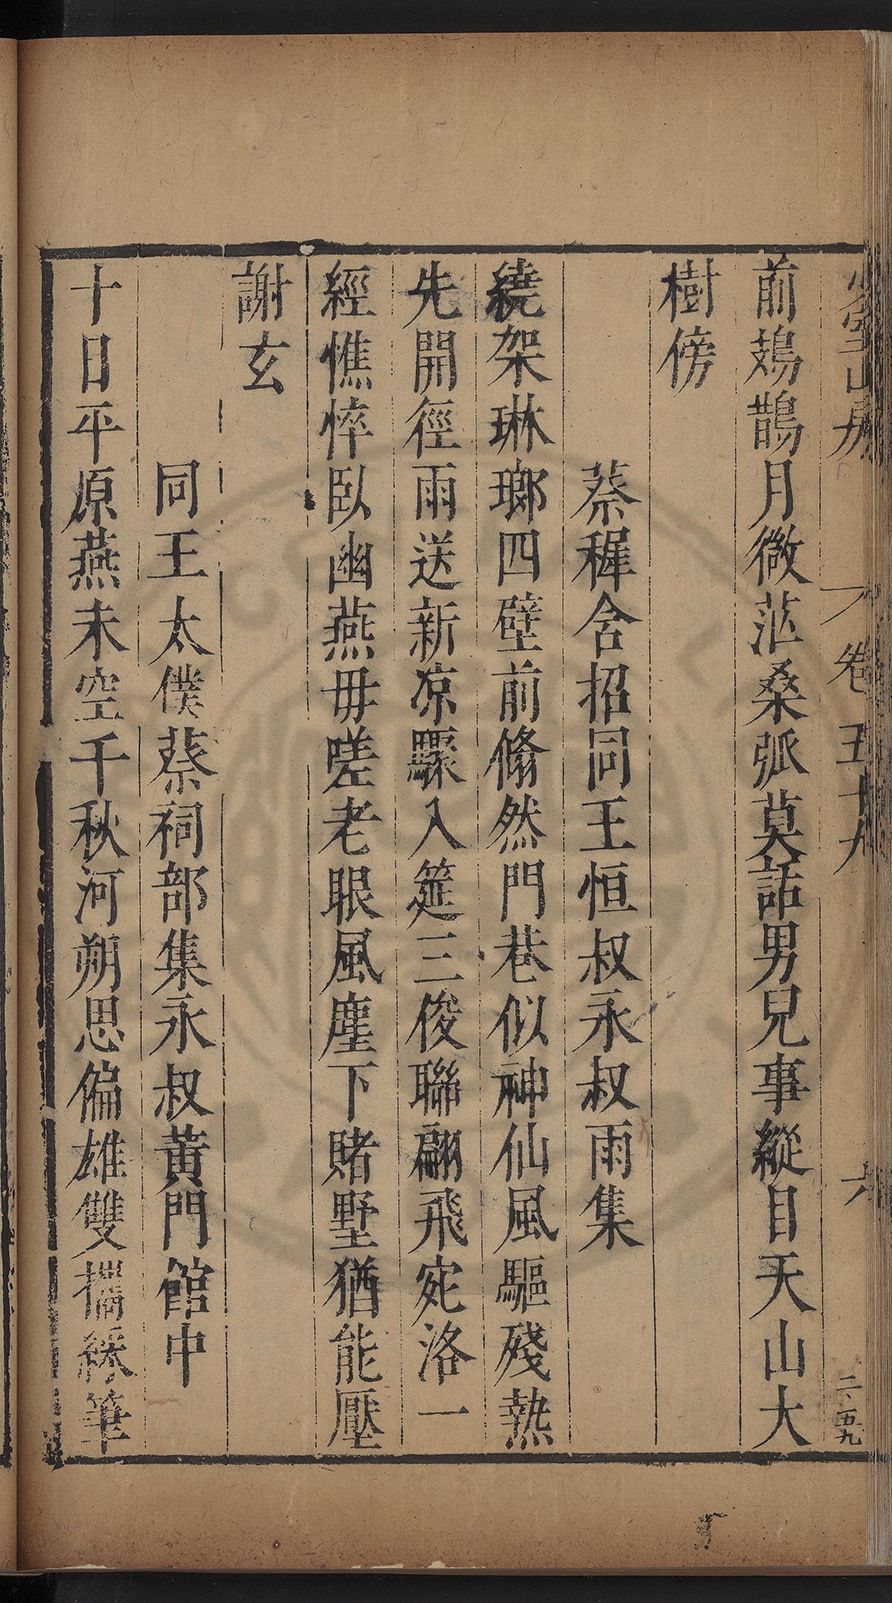 少室山房 卷五十九 六 二、五九
前鳷鵲月微茫桑弧莫話男兒事縱目天山大
樹傍
蔡稺含招同王恒叔永叔雨集
繞架琳瑯四壁前翛然門巷似神仙風驅殘熱
先開徑雨送新凉驟入筵三俊聯翩飛宛洛一
經憔悴臥幽燕毋嗟老眼風塵下賭墅猶能壓
謝玄
同王太僕蔡祠部集永叔黃門館中
十日平原燕未空千秋河朔思偏雄雙攜綵筆